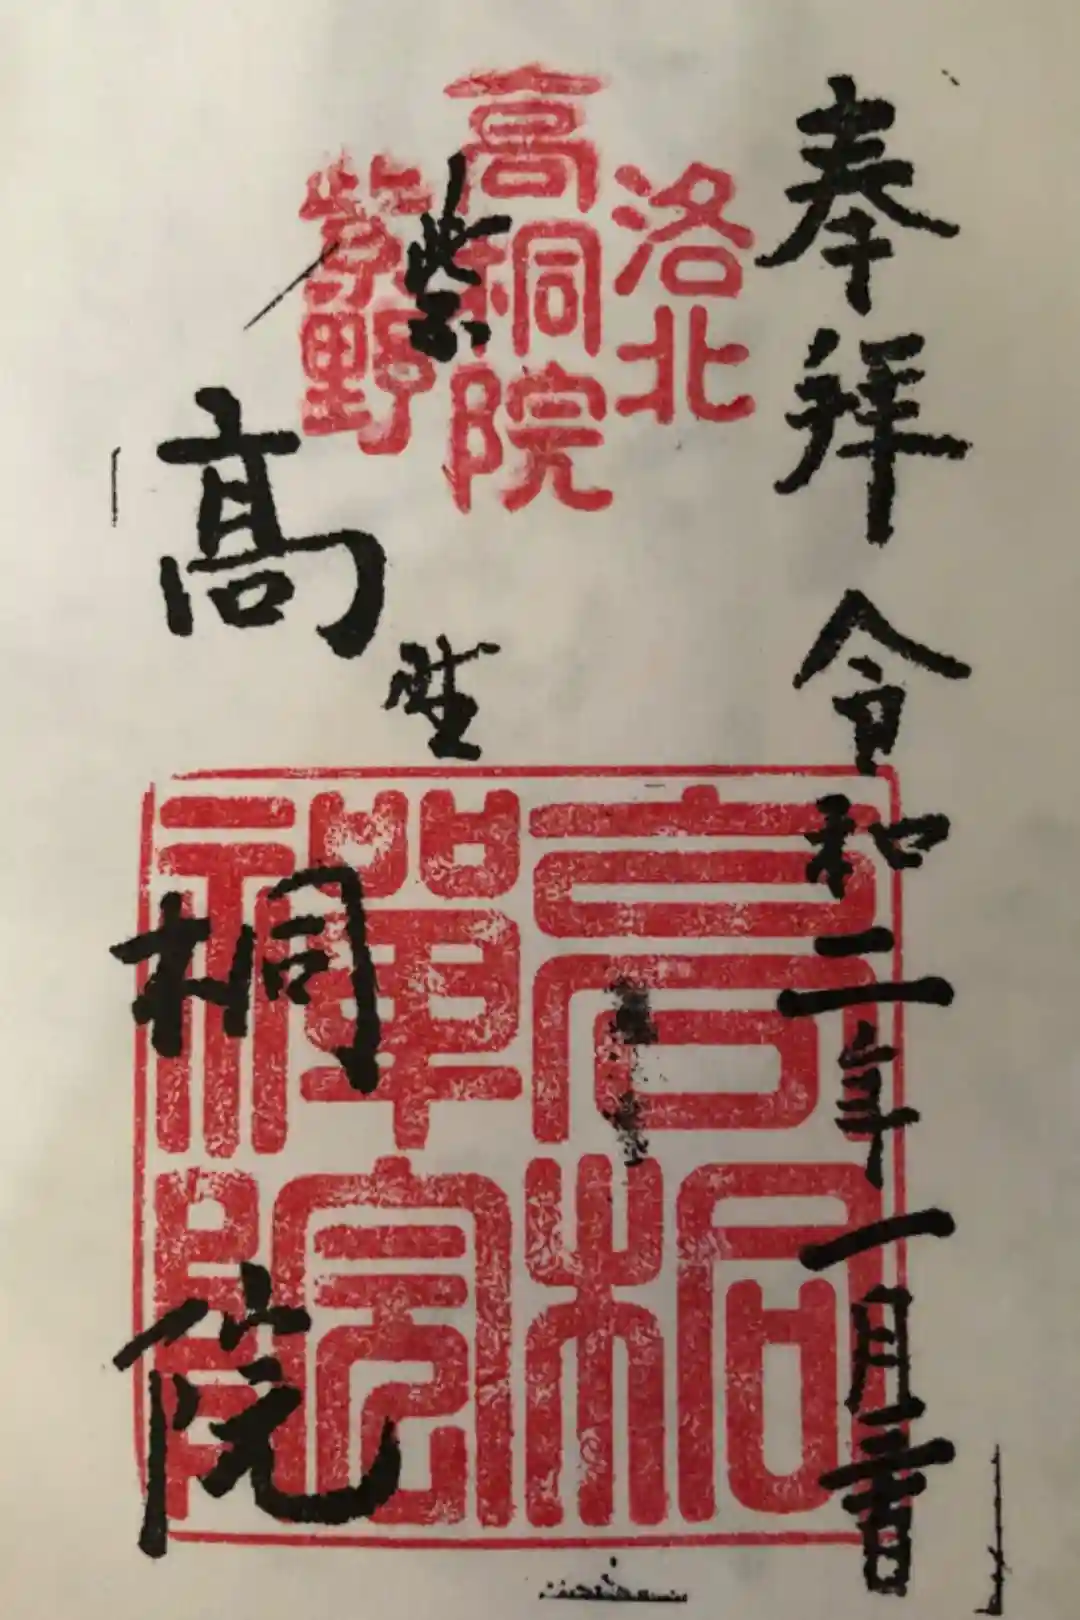 奉拝 令和二年一月三日
洛北
高桐院
紫野
紫野
高桐院
高桐
禪院